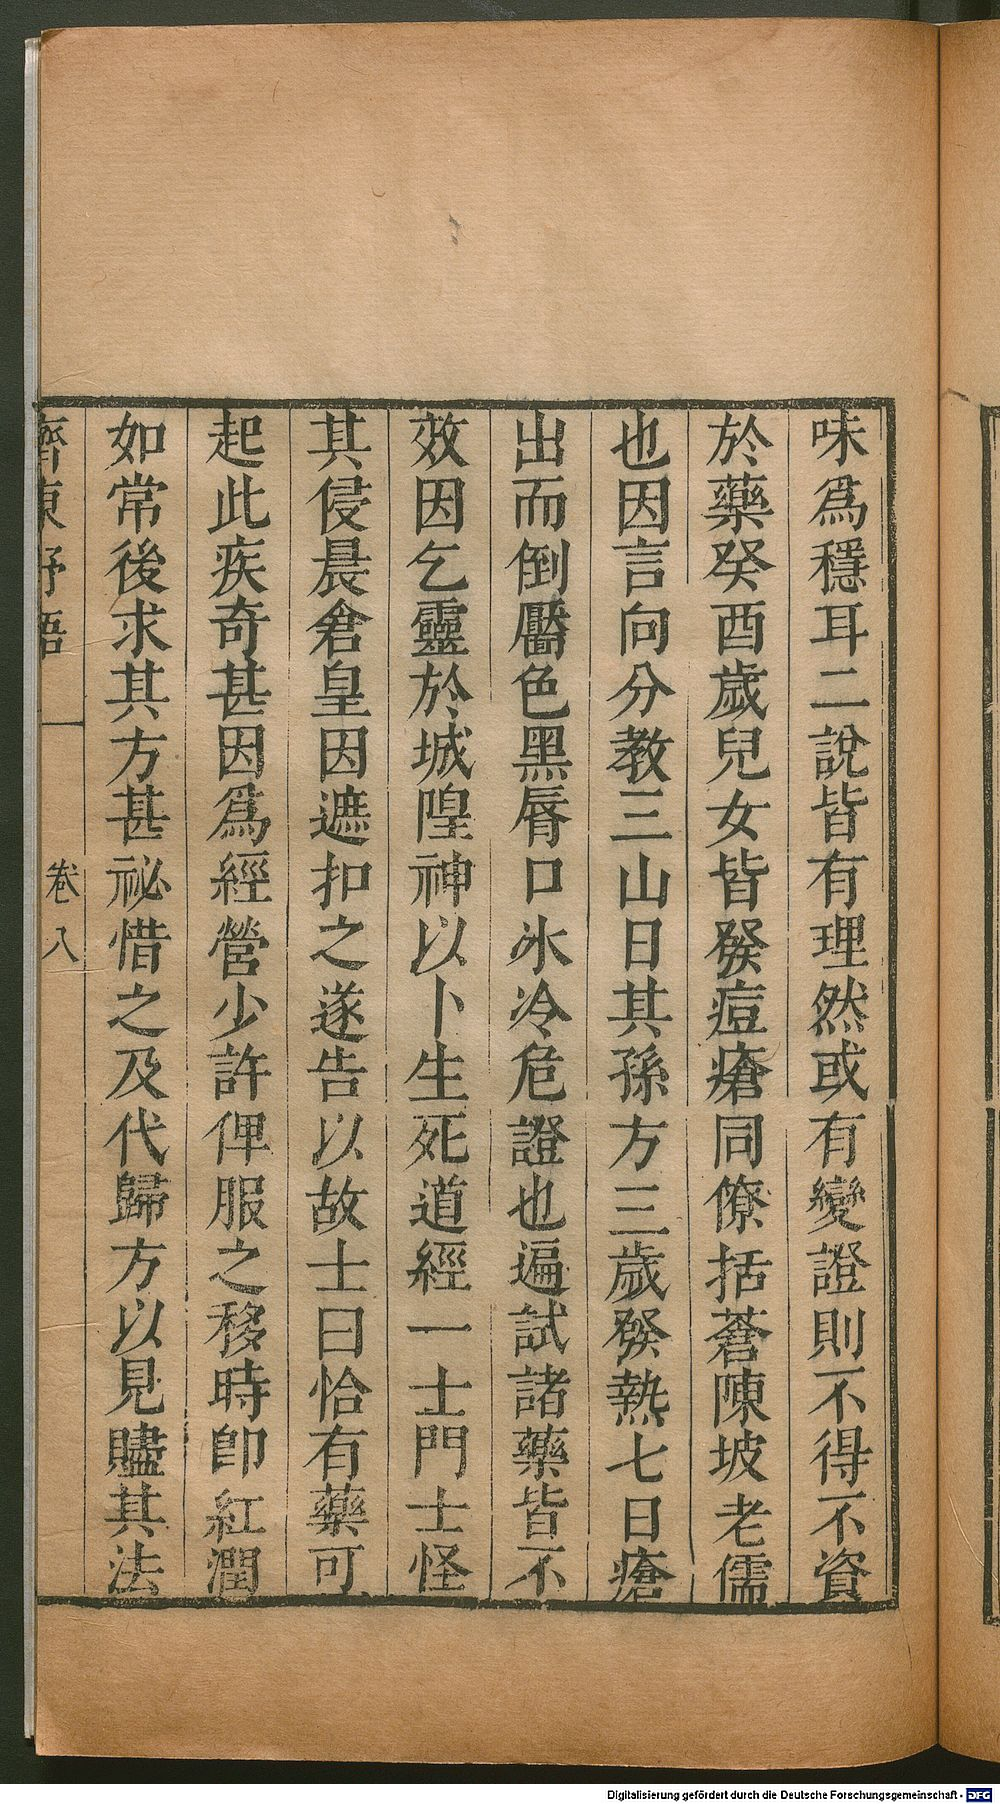 味爲穩耳二說皆有理然或有變證則不得不資
於藥癸酉歲兒女皆發痘瘡同僚括蒼陳坡老儒
也因言向分教三山日其孫方三歲發熱七日瘡
出而倒靨色黑脣口氷冷危證也遍試諸藥皆不
效因乞靈於城隍神以卜生死道經一士門士怪
其侵晨倉皇因遮扣之遂告以故士曰恰有藥可
起此疾奇甚因爲經營少許俾服之移時卽紅潤
如常後求其方甚祕惜之及代歸方以見贐其法
齊東野語 卷八
Digitalisierung gefördert durch die Deutsche Forschungsgemeinschaft - DFG